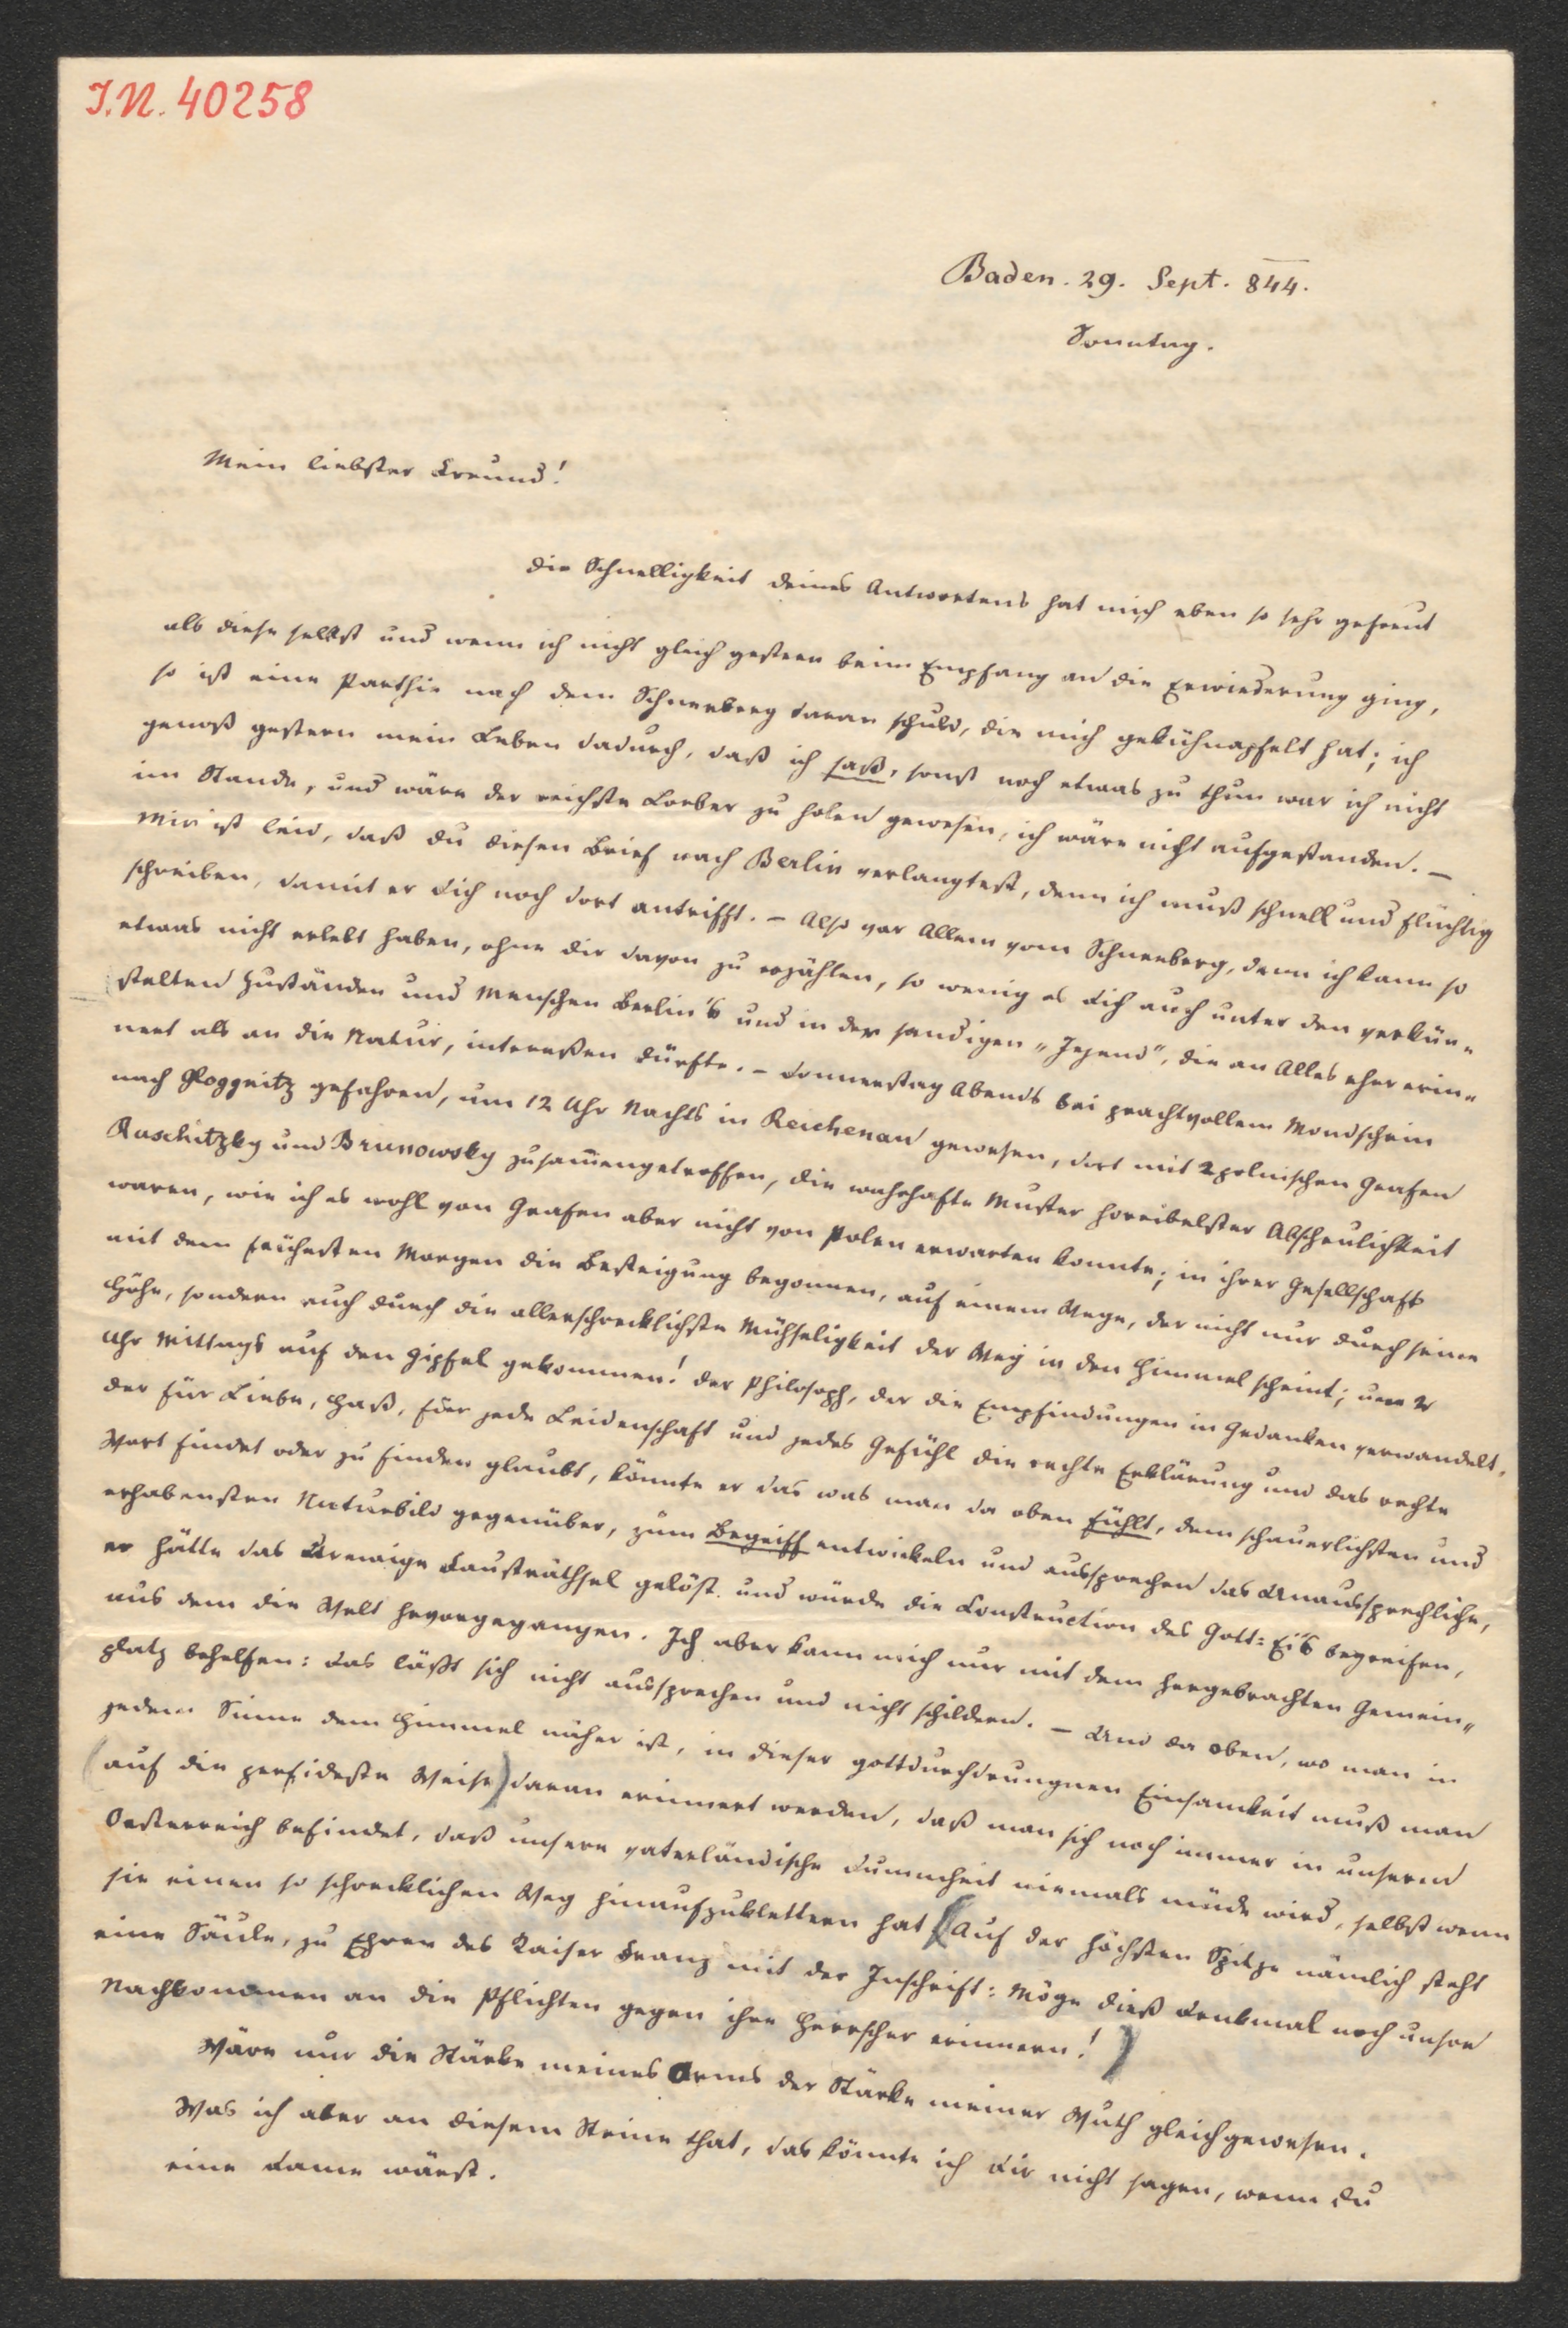 I.N. 40258
Baden. 29. Sept. 844.
Sonntag.
Mein liebster Freund!
Die Schnelligkeit deines Antwortens hat mich eben so sehr gefreut
als diese selbst und wenn ich nicht gleich gestern beim Empfang an die Erwiederung ging,
so ist eine Parthie nach dem Schneeberg daran schuld, die mich hat; ich
genoß gestern mein Leben dadurch, daß ich saß, sonst noch etwas zu thun war ich nicht
im Stande, und wäre der reichste Lorber zu holen gewesen, ich wäre nicht aufgestanden. –
Mir ist leid, daß du diesen Brief nach Berlin verlangtest, denn ich muß schnell und flüchtig
schreiben, damit er dich noch dort antrifft. – Also vor Allem vom Schneeberg, denn ich kann so
etwas nicht erlebt haben, ohne dir davon zu erzählen, so wenig es dich auch unter den verkün„
stelten Zuständen und Menschen Berlin's und in der sandigen „Jejend", die an Alles eher erin„
nert als an die Natur, intereßen dürfte. – Donnerstag Abends bei prachtvollem Mondschein
nach Gloggnitz gefahren, um 12 Uhr Nachts in Reichenau gewesen, dort mit 2 polnischen Grafen
Raschitzky und Brunowsky zusam̄engetroffen, die wahrhafte Muster horribelster Abscheulichkeit
waren, wie ich es wohl von Grafen aber nicht von Polen erwarten konnte; in ihrer Gesellschaft
mit dem frühesten Morgen die Besteigung begonnen, auf einem Wege, der nicht nur durch seine
Höhe, sondern auch durch die allerschrecklichste Mühseligkeit der Weg in den Himmel scheint; um 2
Uhr Mittags auf den Gipfel gekommen! Der Philosoph, der die Empfindungen in Gedanken verwandelt,
der für Liebe, Haß, für jede Leidenschaft und jedes Gefühl die rechte Erklärung und das rechte
Wort findet oder zu finden glaubt, könnte er das was man da oben fühlt, dem schauerlichsten und
erhabensten Naturbild gegenüber, zum Begriff entwickeln und aussprechen das Unaussprechliche,
er hätte das urewige Fausträthsel gelöst und würde die Construction des Gott=Ei's begreifen,
aus dem die Welt hervorgegangen. Ich aber kann mich nur mit dem hergebrachten Gemein„
platz behelfen: das läßt sich nicht aussprechen und nicht schildern. – Und da oben, wo man in
jedem Sinne dem Himmel näher ist, in dieser gottdurchdrungnen Einsamkeit muß man
(auf die perfideste Weise) daran erinnert werden, daß man sich noch immer in unserm
Oesterreich befindet, daß unsere vaterländische Dummheit niemals müde wird, selbst wenn
sie einen so schrecklichen Weg hinaufzuklettern hat (Auf der höchsten Spitze nämlich steht
eine Säule, zu Ehren des Kaiser Franz mit der Inschrift: Möge dieß Denkmal noch unsre
Nachkommen an die Pflichten gegen ihre Herrscher erinnern!)
Wäre nur die Stärke meines Arms der Stärke meiner Wuth gleichgewesen.
Was ich aber an diesem Steine that, das könnte ich dir nicht sagen, wenn du
eine Dame wärst.